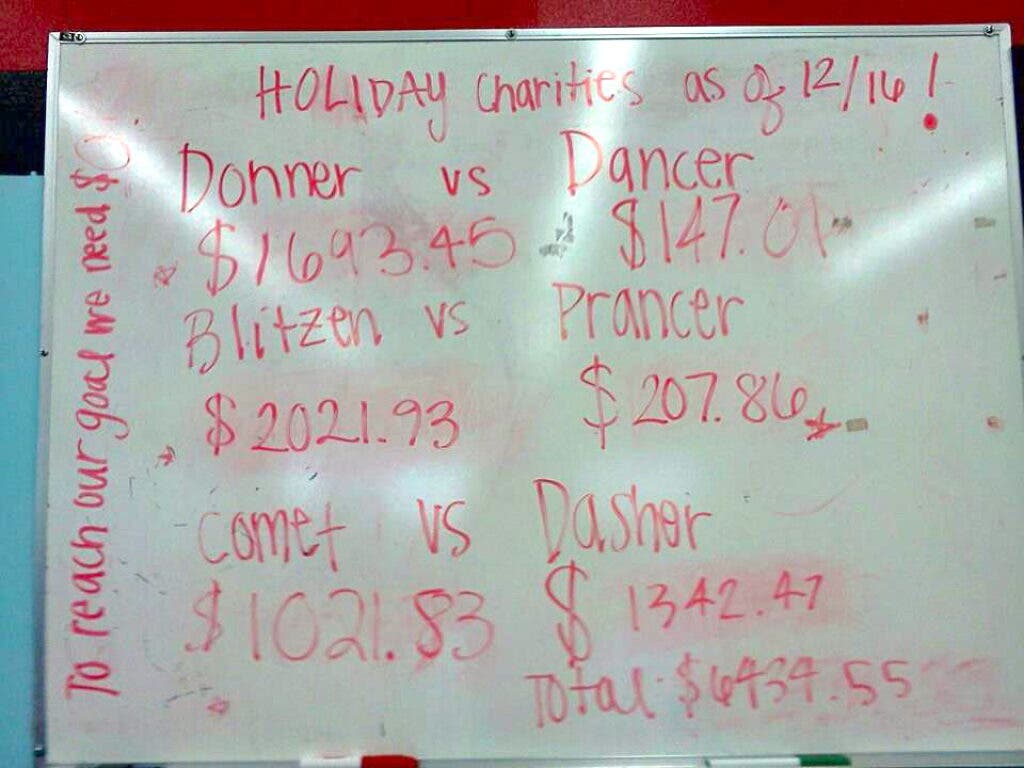 HOLIDAY Charities as of 12/16!
Donner vs Dancer
$1693.45 $147.01
Blitzen vs Prancer
$2021.93 $207.86
Comet vs Dasher
$1021.83 $1342.47
Total: $6434.55
To reach our goal we need $0.